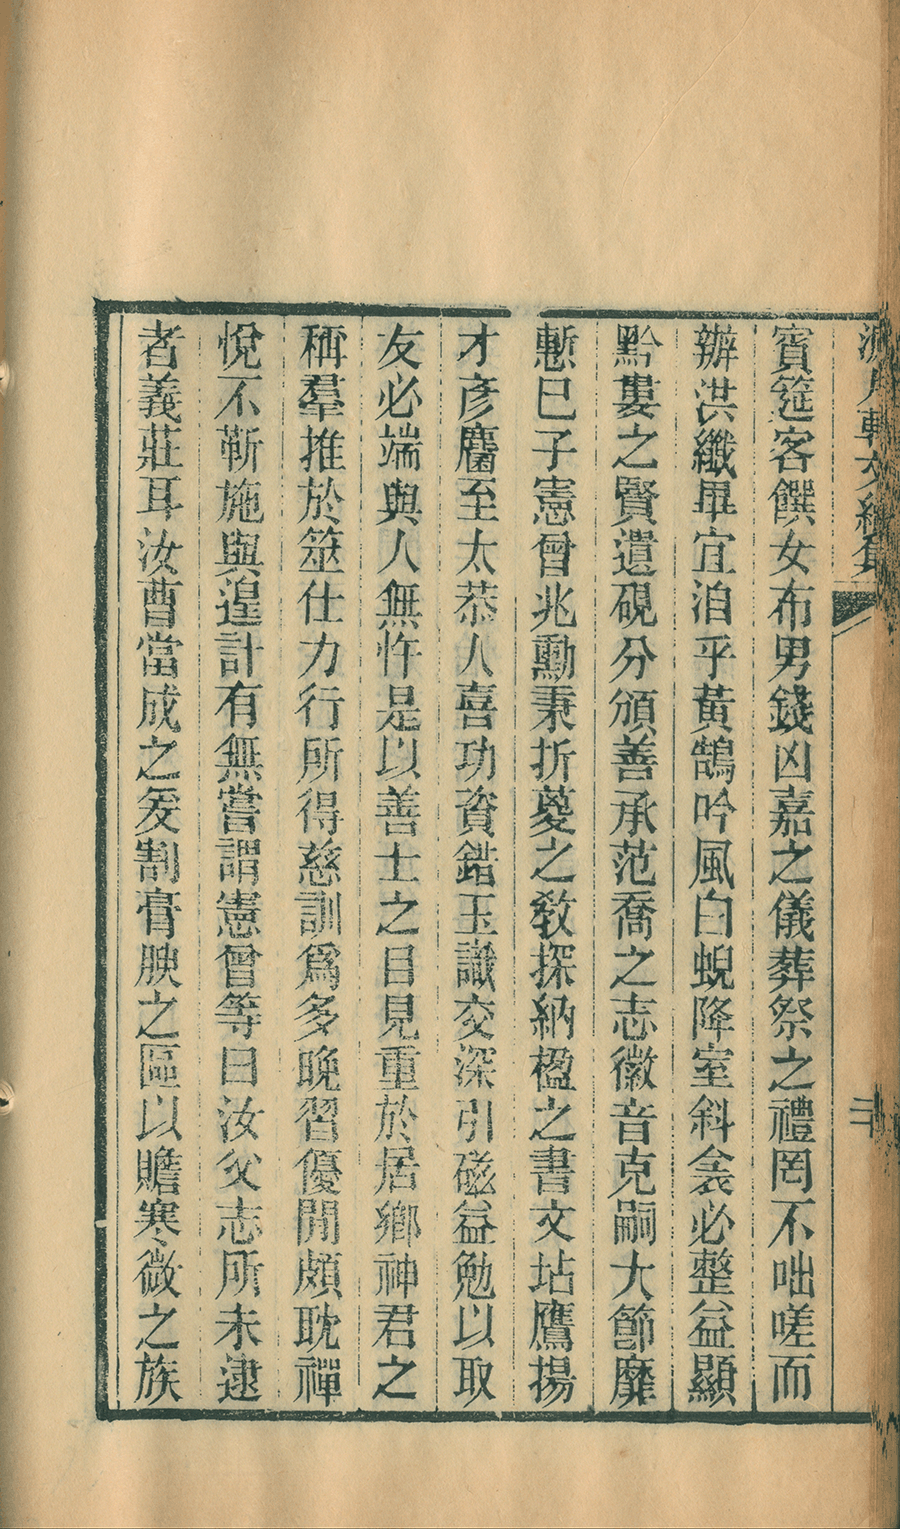 賓筵客饌女布男錢凶嘉之儀葬祭之禮罔不咄嗟而
辦洪纖畢宜洎乎黃鵠吟風白蜺降室斜衾必整益顯
黔婁之賢遺硯分頒善承范喬之志徽音克嗣大節靡
慙巳子憲曾兆勳秉折葼之敎探納楹之書文坫鷹揚
才彥麕至太恭人喜功資錯玉識交深引磁益勉以取
友必端與人無忤是以善士之目見重於居鄉神君之
稱羣推於筮仕力行所得慈訓爲多晚習優閒頗耽禪
悅不靳施與遑計有無嘗謂憲曾等曰汝父志所未逮
者義莊耳汝曹當成之爰割膏腴之區以贍寒微之族
文續集
二